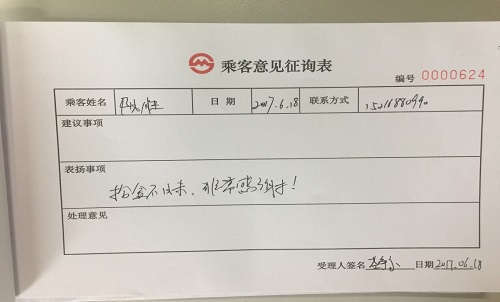 乘客意见征询表
编号 0000624
乘客姓名 日期 2017.6.18 联系方式
建议事项
表扬事项
拾金不昧、非常感谢!
处理意见
受理人签名 日期 2017.06.18